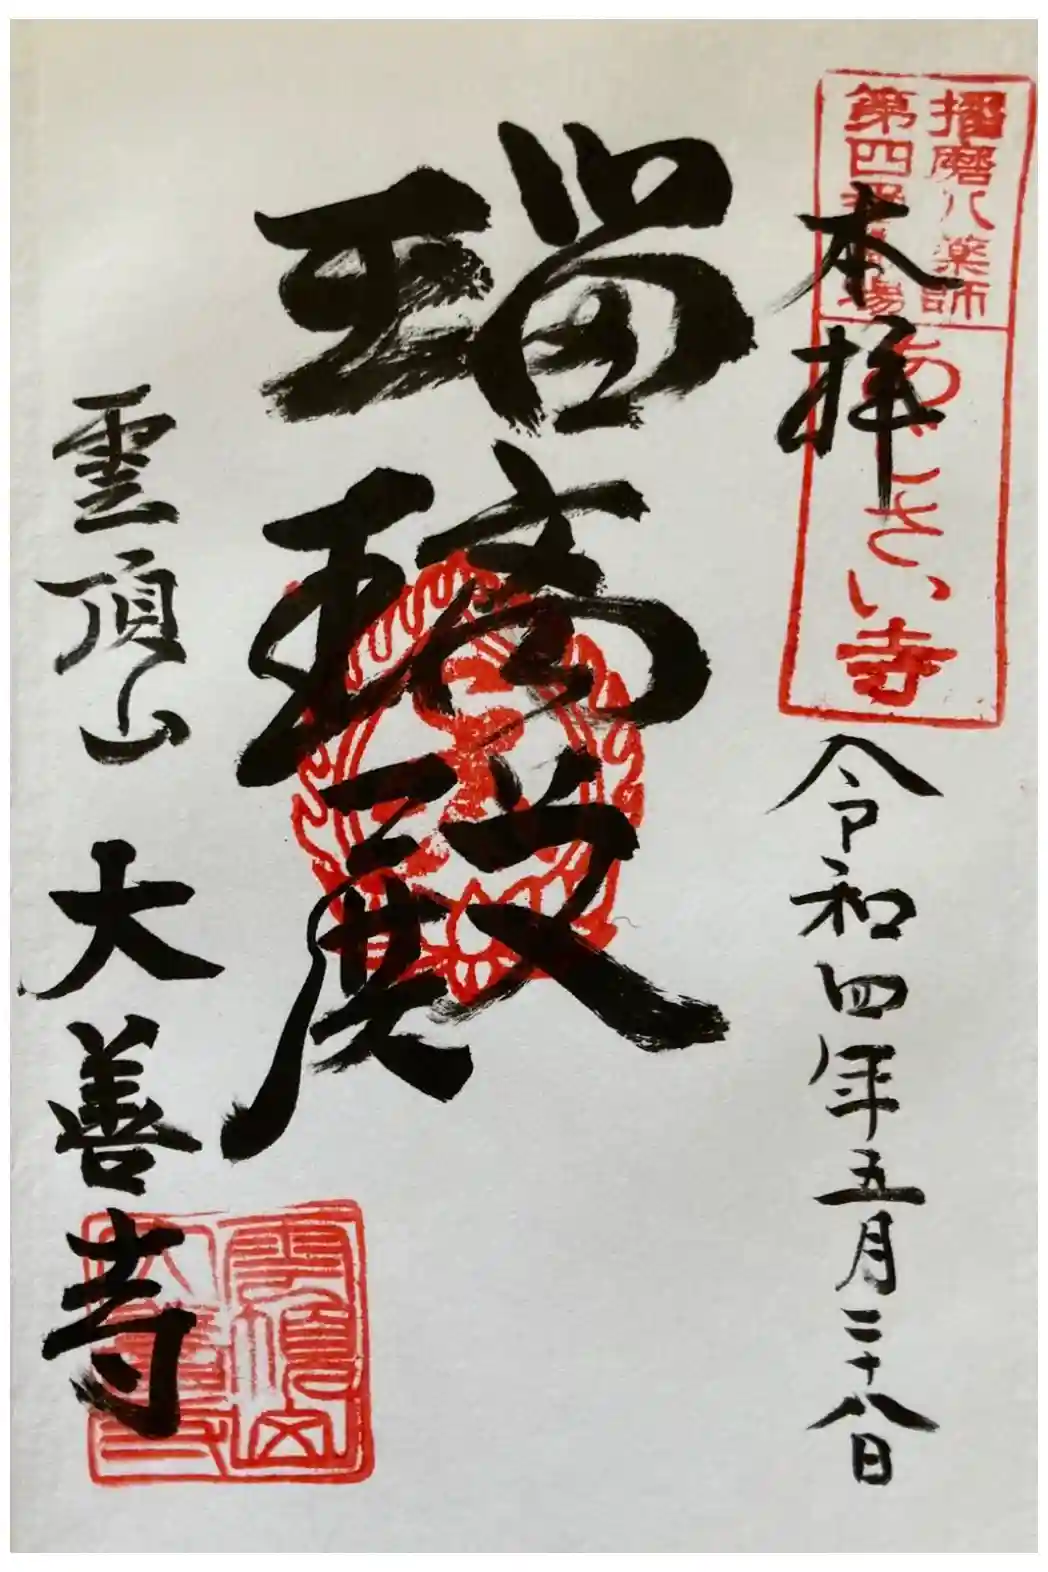 播磨八薬師
第四番霊場
あじさい寺
奉拝
令和四年五月二十八日
瑠璃殿
雲頂山 大善寺
雲頂山
大善寺